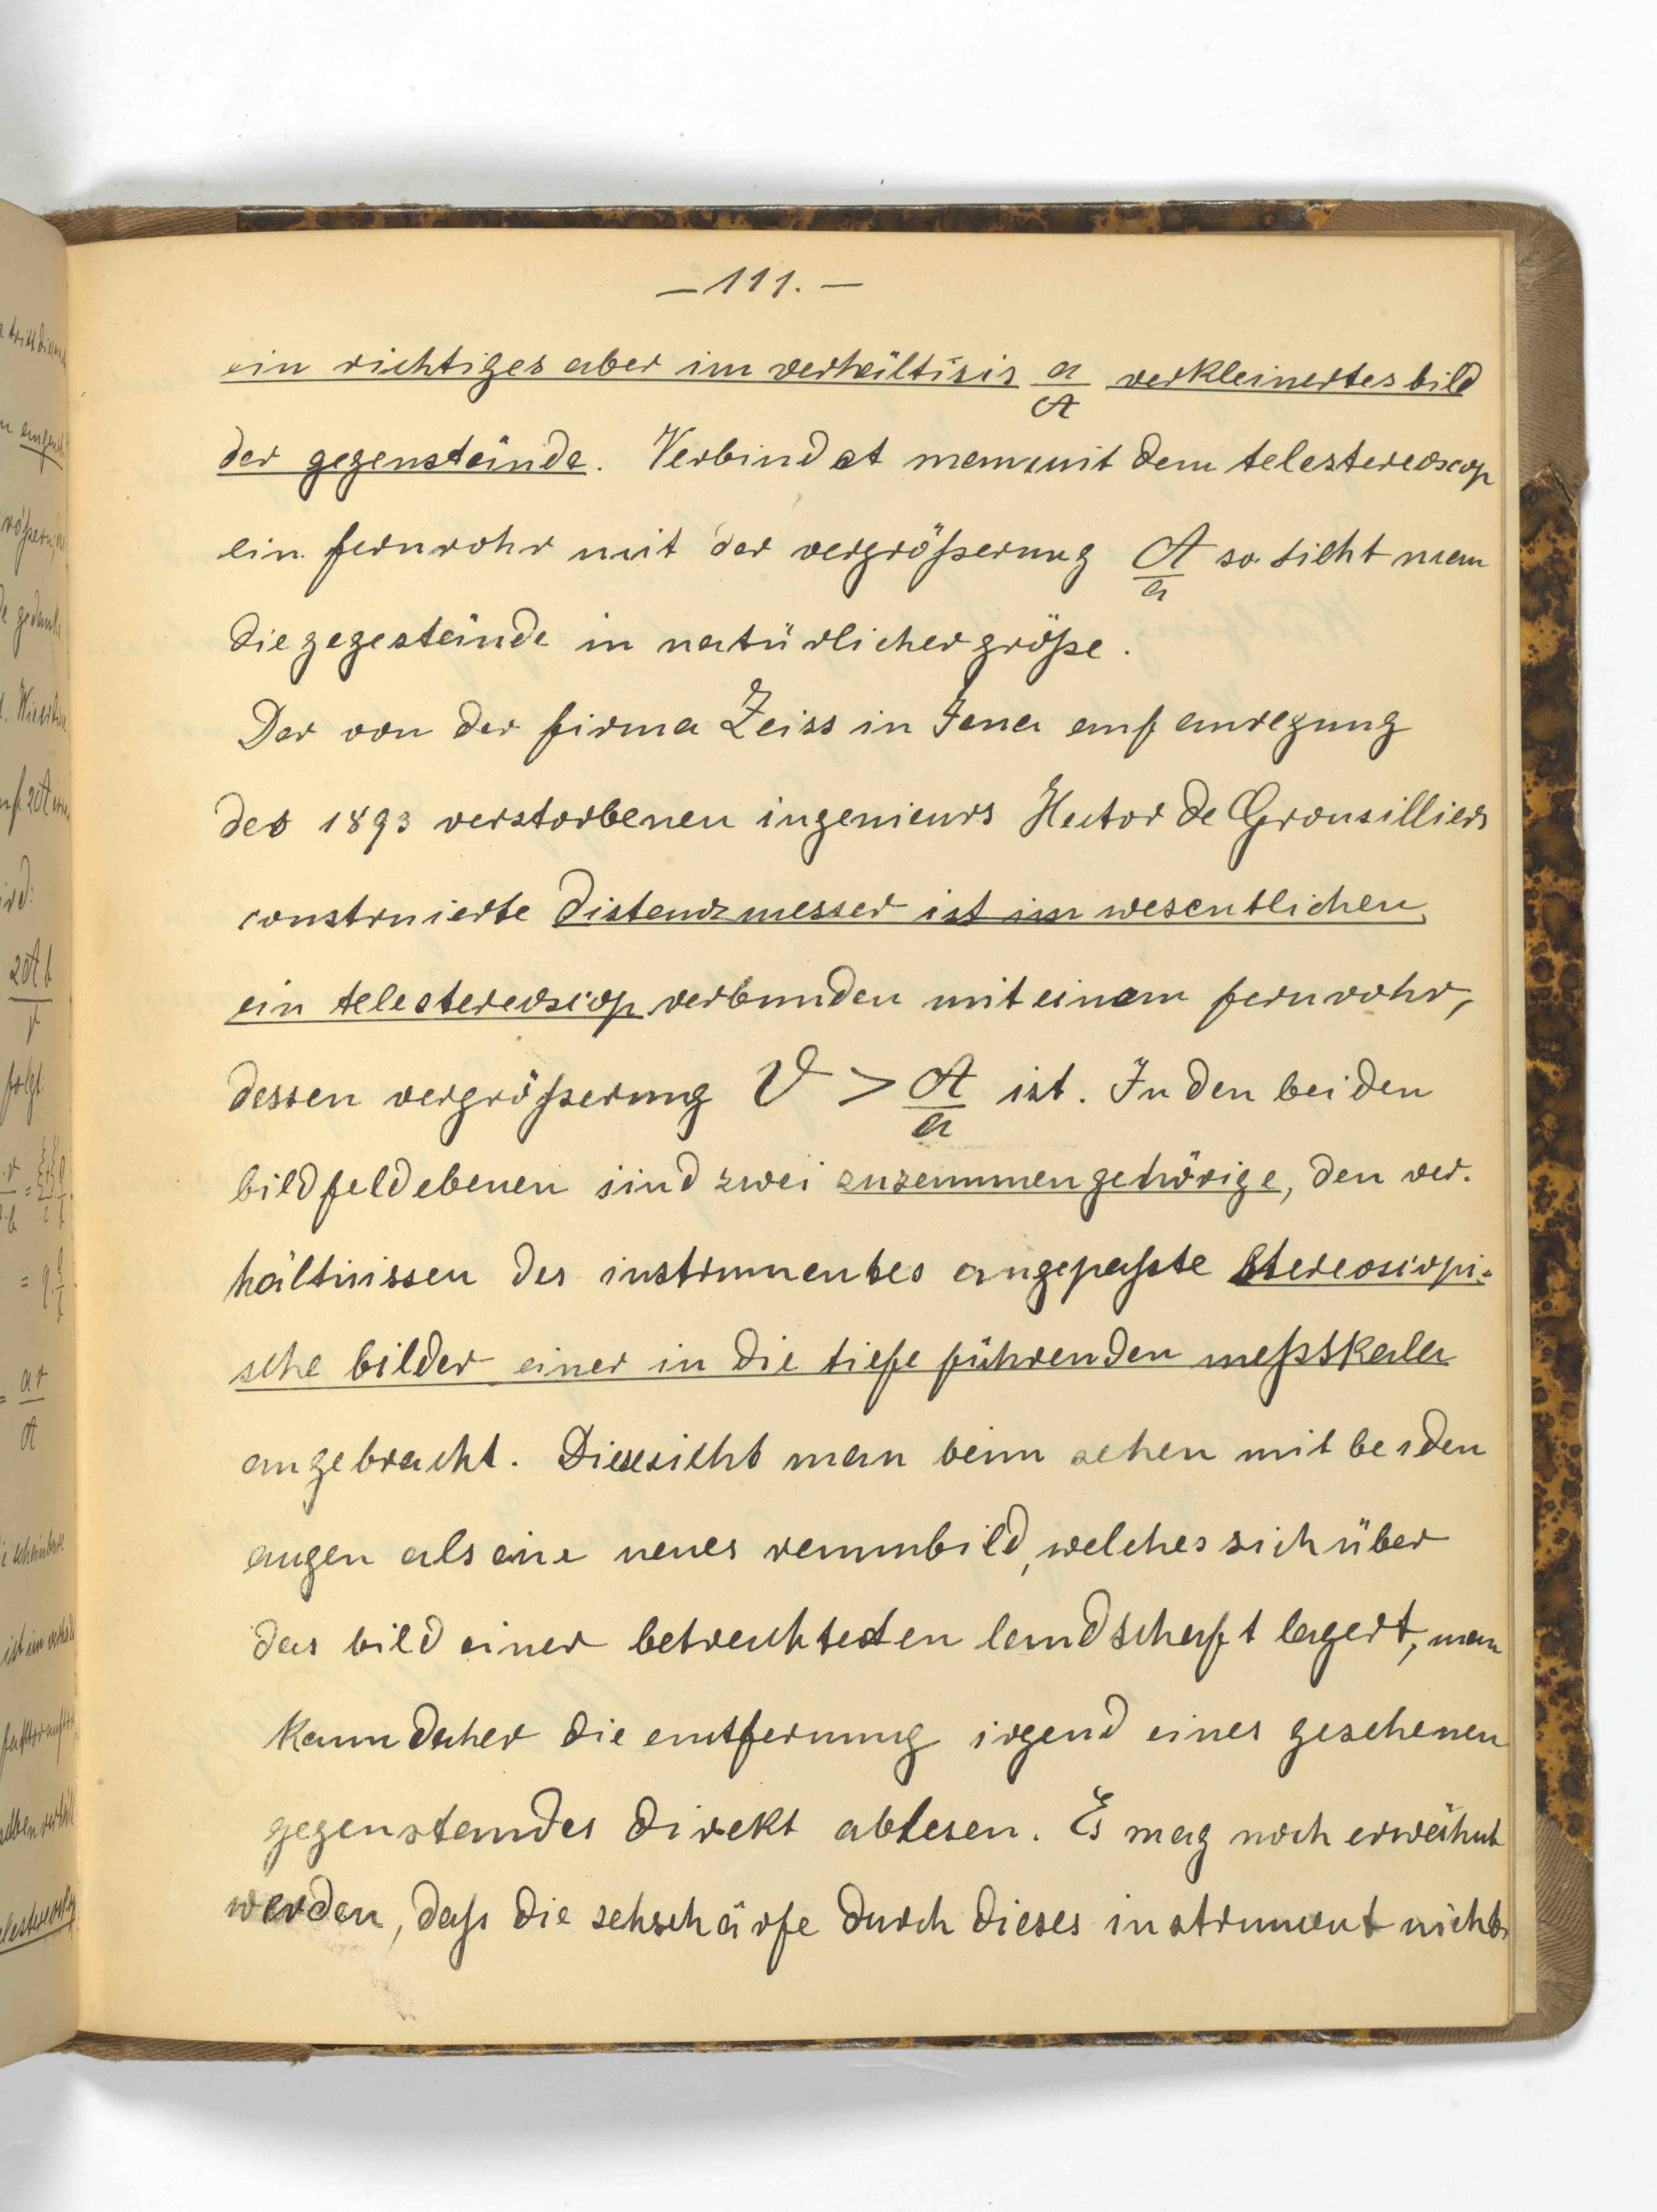 – 111. –
ein richtiges aber im verhältisis a/A verkleinertes bild
der gegenstände. Verbindet man mit dem telestereoscop
ein fernrohr mit der vergrößerung A/a so sieht man
die gegestände in natürlicher größe.
Der von der firma Zeiss in Jena auf anregung
des 1893 verstorbenen ingenieurs Hector de Grousilliers
construierte distanzmesser ist im wesentlichen
ein telestereoscop verbunden mit einem fernrohr,
dessen vergrößerung V > A/a ist. In den beiden
bildfeldebenen sind zwei zusammengehörige, den ver-
hältnissen des instrumentes angepaßte stereoscopi-
sche bilder einer in die tiefe führenden meßskala
angebracht. Diese sieht man beim sehen mit beiden
augen als eine neues raumbild, welches sich über
das bild einer betrachteten landschaft lagert, man
kann daher die entfernung irgend eines gesehenen
gegenstandes direkt ablesen. Es mag noch erwähnt
werden, daß die sehschärfe durch dieses instrument nicht